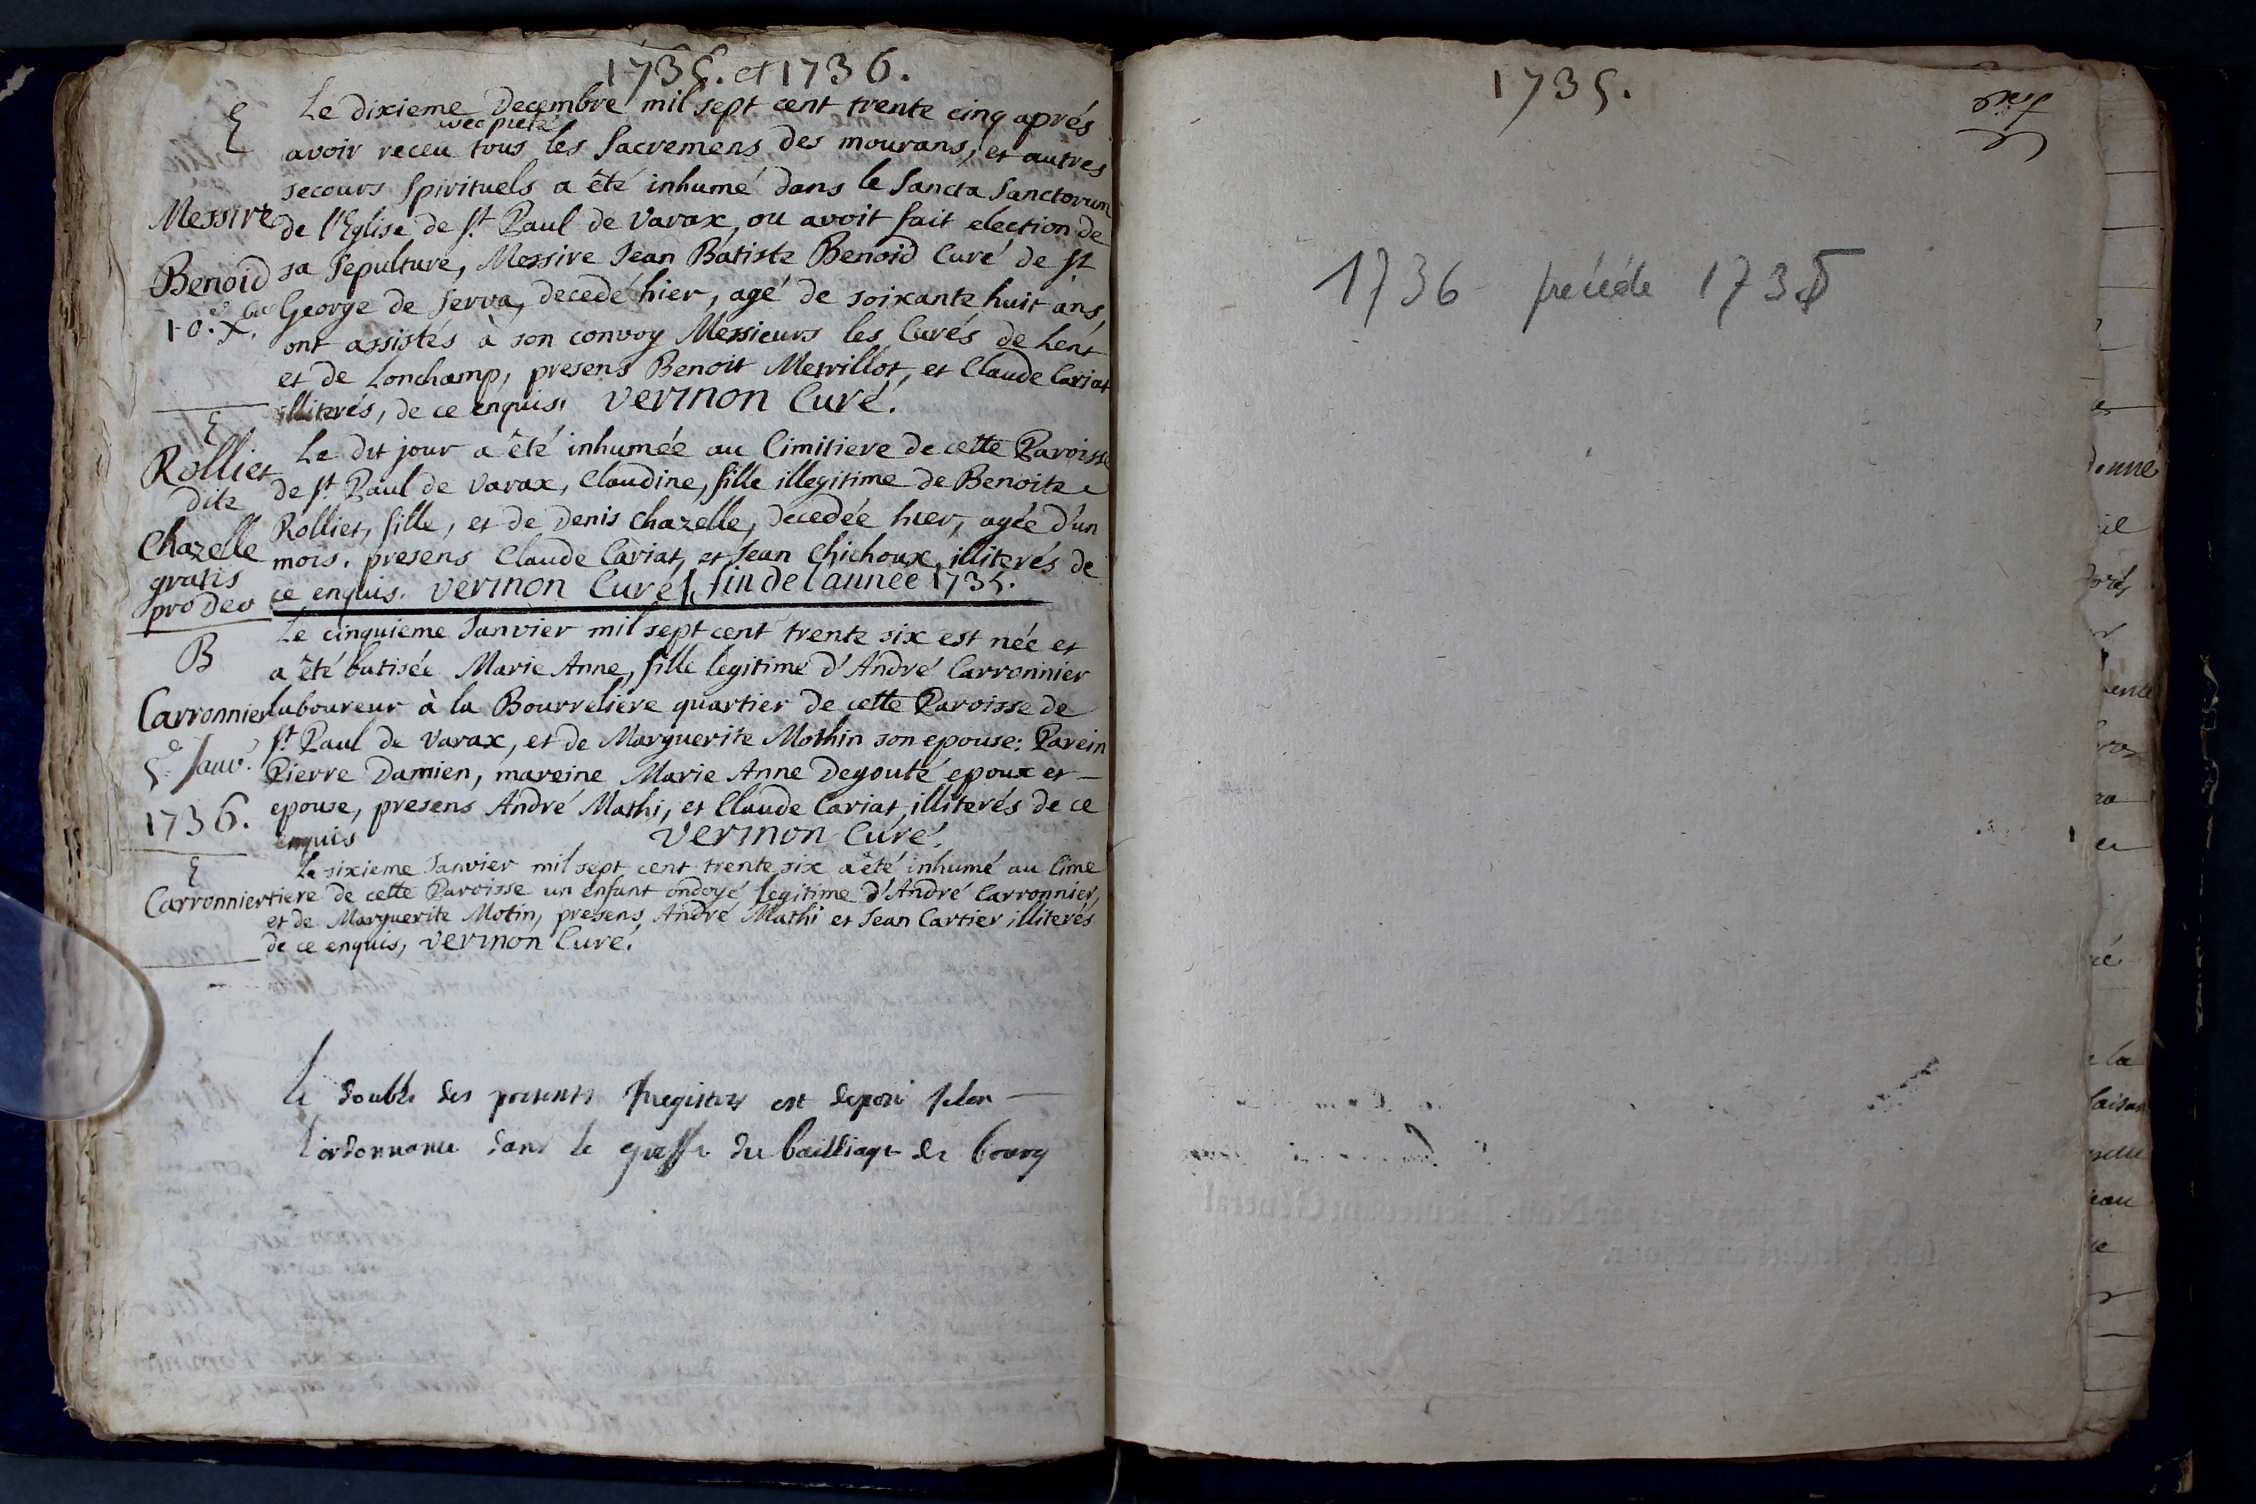 1735. et 1736.
E
Le dixieme Decembre mil sept cent trente cinq aprés
avec pieté
avoir receu tous les Sacremens des mourans, et autres
secours spirituels a êté inhumé dans le Sancta Sanctorum
Messire
de l'Eglise de St. Paul de Varax, ou avoit fait election de
Benoid
sa sepulture, Messire Jean Batiste Benoid Curé de St
10.e xbre
George de Serva, decedé hier, agé de soixante huit ans,
ont assistés à son convoy Messieurs les Curés de Lent
et de Lonchamp, presens Benoit Mervillot, et Claude Cariat
illiterés, de ce enquis. Vermon Curé.
E
Rolliet
dite
Chazelle
gratis
pro Deo
Le dit jour a êté inhumée au Cimitiere de cette Paroisse
de St. Paul de Varax, Claudine, fille illegitime de Benoite
Rolliet, fille, et de Denis Chazelle, decedée hier, agée d'un
mois. presens Claude Cariat, et Jean Chichoux, illiterés de
ce enquis. Vermon Curé fin de l'année 1735.
B
Carronnier
5.e Janv.
1736.
Le cinquieme Janvier mil sept cent trente six est née et
a êté batisée Marie Anne, fille legitime d'André Carronnier
laboureur à la Bourreliere quartier de cette Paroisse de
St. Paul de Varax, et de Marguerite Mothin son epouse: Parein
Pierre Damien, mareine Marie Anne Degouté epoux et
epouse, presens André Mathi, et Claude Cariat, illiterés de ce
enquis Vermon Curé.
E
Carronnier
Le sixieme Janvier mil sept cent trente six a êté inhumé au Cime
tiere de cette Paroisse un enfant ondoyé legitime d'André Carronnier,
et de Marguerite Motin, presens André Mathi et Jean Cartier illiterés
de ce enquis, Vermon Curé.
Le double des presents registres est deposé selon
l'ordonnance dans le greffe du bailliage de bourg
1735.
1736 précéde 1735